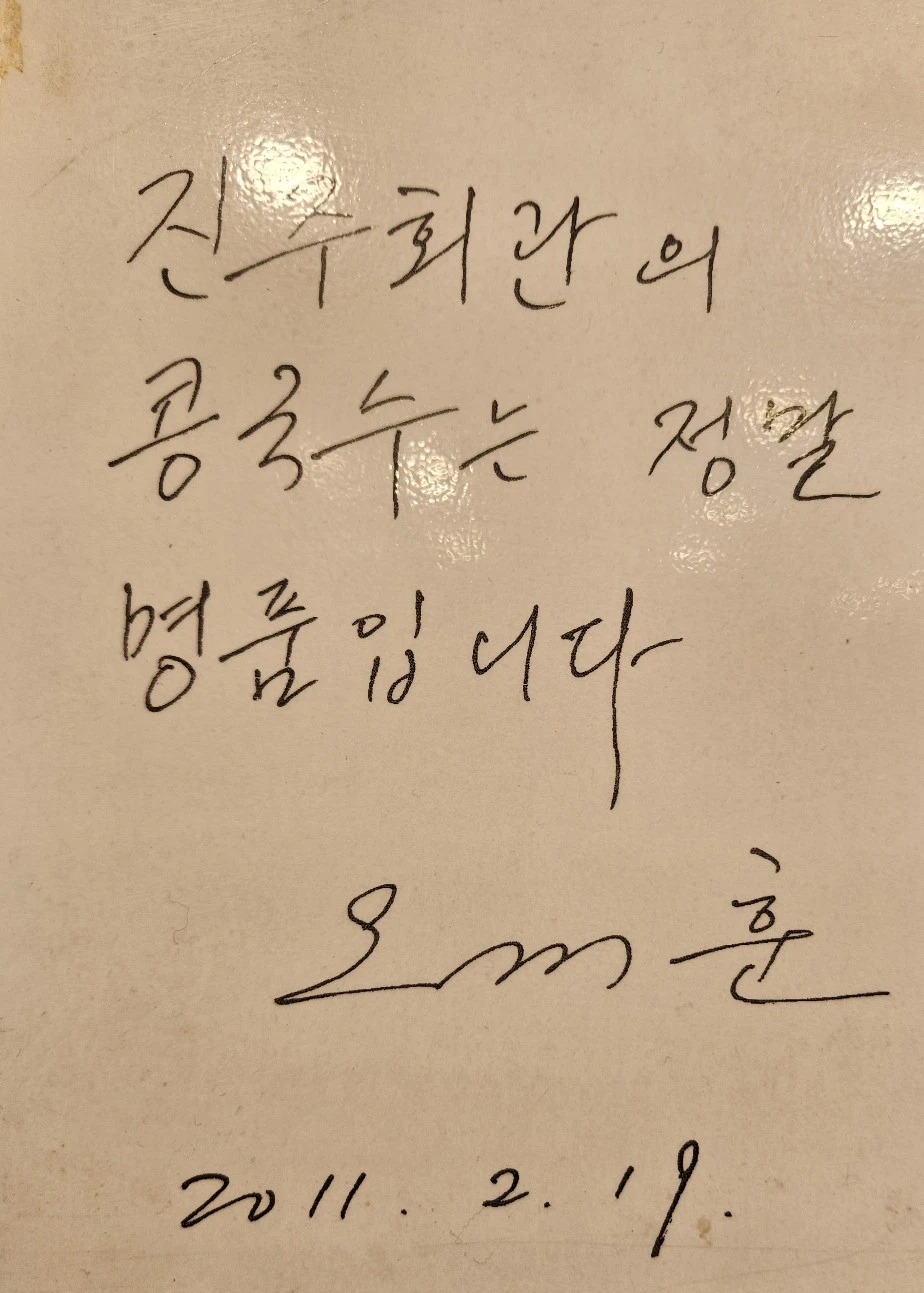 진수회관의
콩국수는 정말
명품입니다
오세훈
2011. 2. 19.